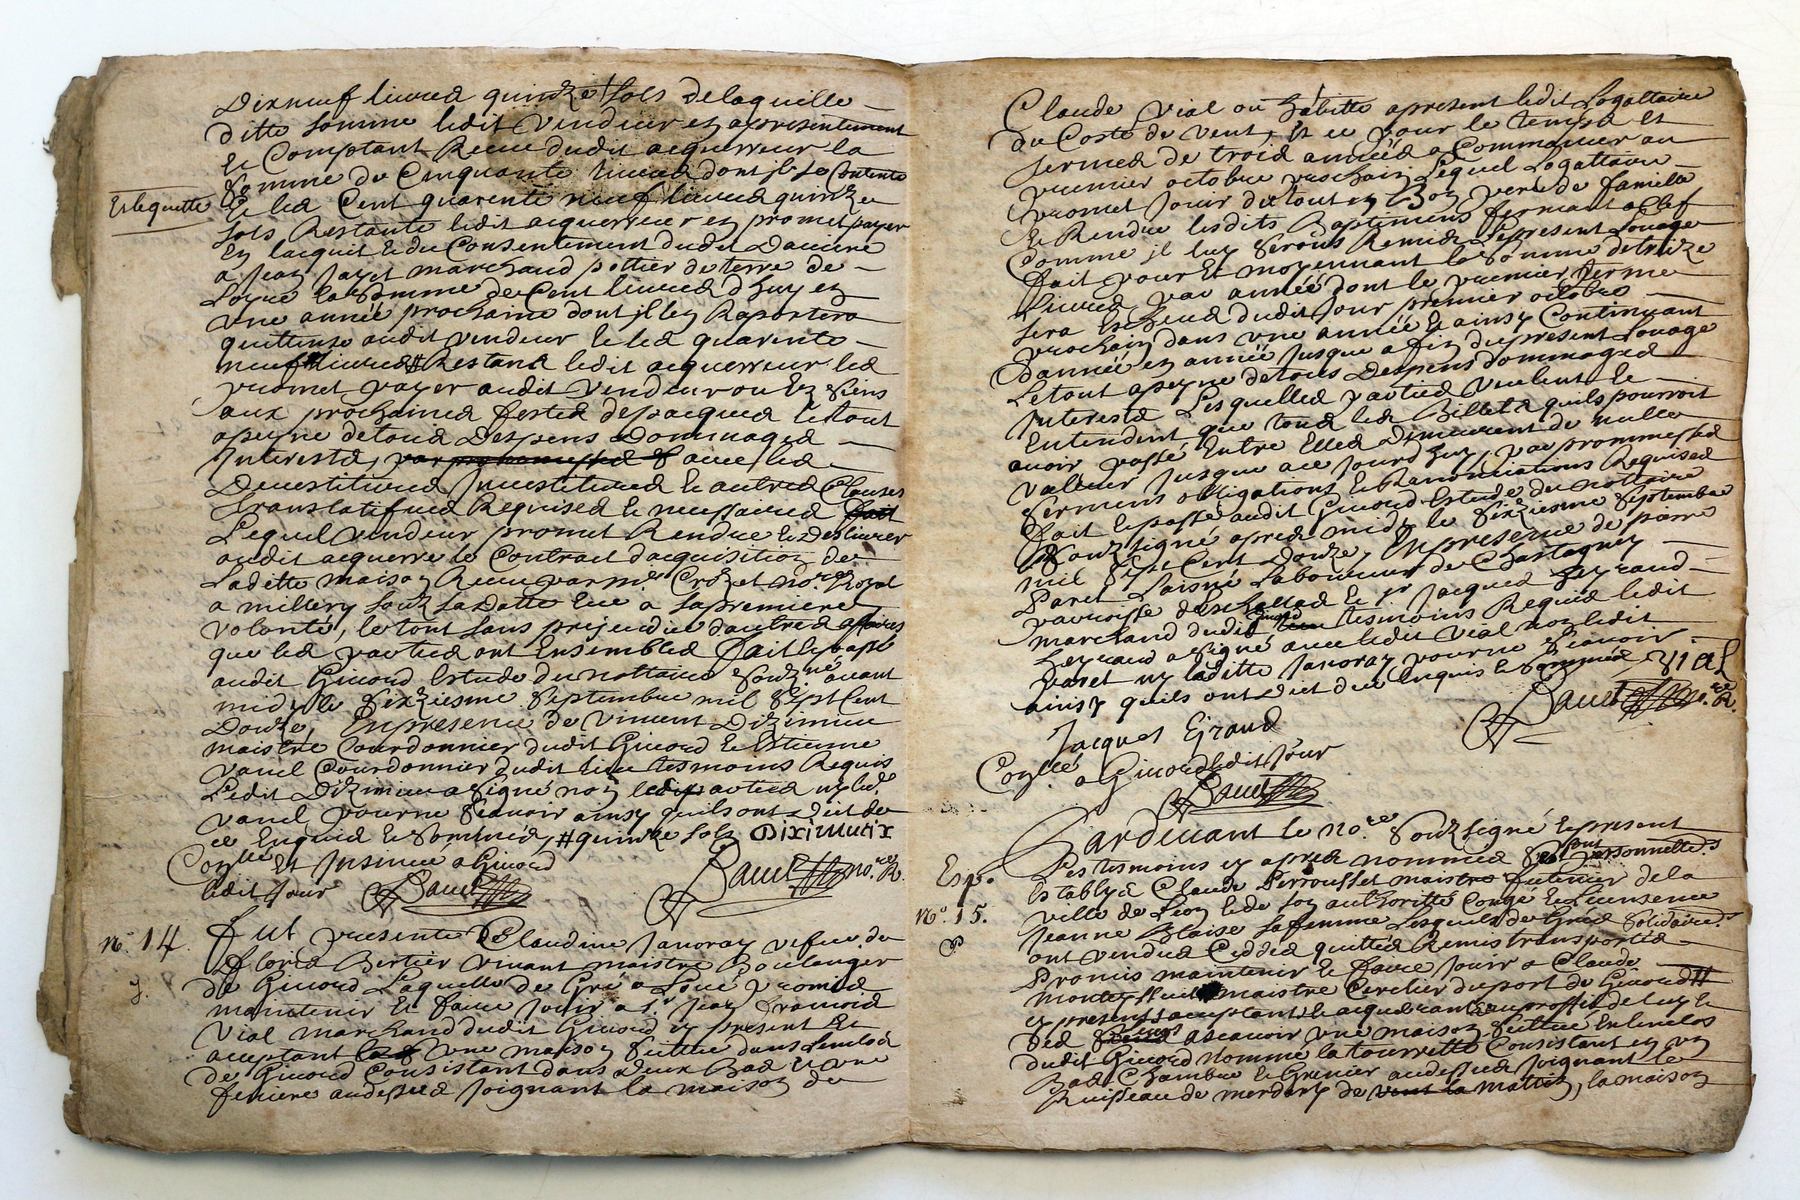 Dixneuf livres quinze sols delaquelle
ditte somme ledit vendeur en a presentement
et Comptant Receu dudit acquerreur la
somme de Cinquante livres dont jl se Contente
Et lequitte
Et les Cent quarente neuf livres quinze
sols Restants ledit acquerreur en promet payer
En lacquit et du Consentement dudit
a jean marchand pottier de terre de
la somme de Cent livres d'huy en
une année prochaine dont jl luy Raportera
quittense audit vendeur et les quarente
neuf livres # Restans ledit acquerreur les
promet payer audit vendeur ou Ez siens
aux prochaines festes de pacques le tout
a peyne de tous Despens Dommages
Interests, par prommesses & avec les
Devestitures Jnvestitures et autres Clauses
translatifves Requises et necessaires fait
Lequel vendeur promet Rendre et Deslivrer
audit acquerre le Contract dacquisition de
Ladette maison Receu par me Crozet nore Royal
a millery soubz sa Datte Eue a sa premiere
volonté, le tout sans prejudice dautres affaires
que les parties ont Ensembles fait et passé
audit Givord Estude du nottaire soubzné avant
midy le seizziesme septembre mil sept Cent
Douze, En presence de vincent Dizimieu
maistre Courdonnier dudit Givord et Estienne
vanel Courdonnier dudit lieu tesmoins Requis
Ledit Dizimieu a signé non lesdites parties ny led.
vanel pour ne scavoir ainsy quils ont dit de
ce Enquis et sommés, # quinze sols Diximieux
Conllé Et Jnsinué a Givord
ledit jour
nore R.
no. 14.
Fut presente Claudine Janoray vefve de
Floris Bertier vivant maistre Boulanger
de Givord Laquelle de Gré a Loué promis
maintenir Et faire jouir a sr jean
Vial marchand dudit Givord cy present Et
acceptant une maison scittue dans Lenclos
de Givord Consistant dans deux Bas et une
feniere audessus joignant la maison de
Claude Vial ou habitte a present ledit Logattaire
du Costé de vent, Et ce pour le temps et
termes de trois années a Commancer au
premier octobre prochain Lequel Logattaire
promet jouir du tout en Bon pere de famille
et Rendre lesdits Baptiments fermant a Clef
Comme jl luy seront Remis Le present Louage
fait pour Et moyennant la somme de treize
Livres par année dont le premier terme
sera Escheus dudit jour premier octobre
prochain dans une année & ainsy Continuant
dannée en année jusque a fin du present Louage
Le tout a peyne de tous Despens Dommages
Interests Lesquelles parties veulent Et
Entendent que tous les Billets quils pourroit
avoir passé Entre Elles demeurent de nulle
valleur jusque a ce jourdhuy, par prommesses
serments obligations et Renonciations Requises
fait et passé audit Givord Estude du nottaire
soubzsigné apres midy le seizziesme septembre
mil sept Cent Douze, En presence de pierre
Paret Laisné Laboureur de Chastagny
parroisse et sr Jacques
marchand dudit Givord tesmoins Requis ledit
a signé avec ledit vial non ledit
paret ny laditte Janoray pour ne scavoir
ainsy quils ont dit de ce Enquis et sommés vial
Jacques Giraud
nore R.
Conllé a Givord ledit jour
Esp.
no. 15.
Pardevant le nore soubzsigné et present
Les tesmoins cy apres nommes sont personnellet
Establys Claude Perrousset maistre de la
ville de Lion et de son authoritte Congé et Licensence
Jeanne Blaise sa femme Lesquels de Gréés solidairet
ont vendus Ceddés quittés Remis transportés
Promis maintenir Et faire jouir a Claude
maistre Cerclier du port de Givord #
cy present acceptant et acquerant au proffit de luy et
des siens ascavoir une maison scittue En lenclos
dudit Givord nommé la tourrette Consistant en un
Bas Chambre et Grenier audessus joignant le
Ruisseau de merdary de vent la matin, la maison